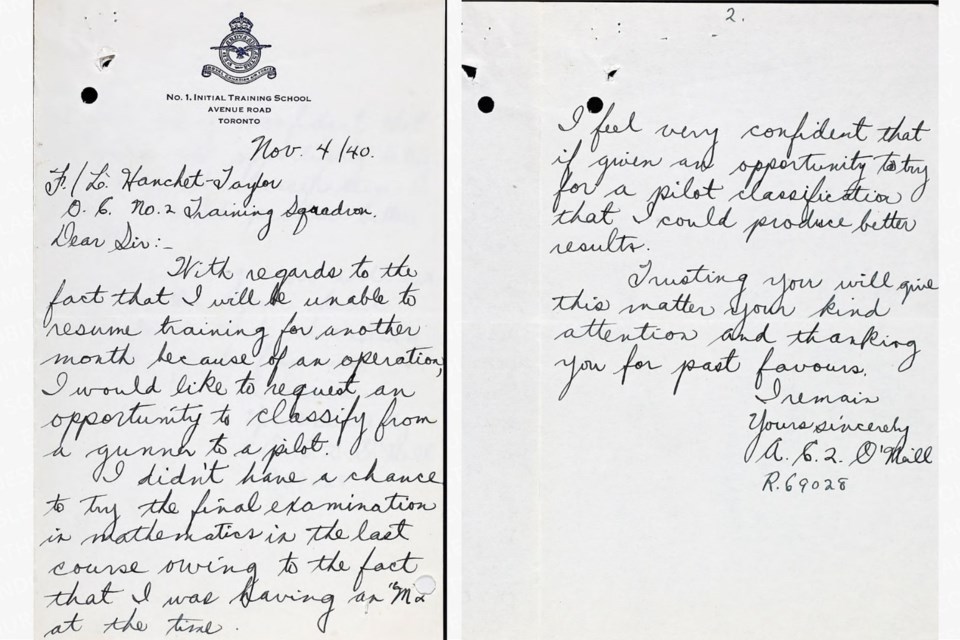 ROYAL CANADIAN AIR FORCE
No. 1. INITIAL TRAINING SCHOOL
AVENUE ROAD
TORONTO
Nov. 4/40.
F./L. Hanchet-Taylor
O. C. No. 2 Training Squadron.
Dear Sir:-
With regards to the
fact that I will be unable to
resume training for another
month because of an operation,
I would like to request an
opportunity to classify from
a gunner to a pilot.
I didn't have a chance
to try the final examination
in mathematics in the last
course owing to the fact
that I was having an "M2
at the time.
2.
I feel very confident that
if given an opportunity to try
for a pilot classification
that I could produce better
results.
Trusting you will give
this matter your kind
attention and thanking
you for past favours.
I remain
Yours sincerely
A. C. 2. O'Neill
R.69028